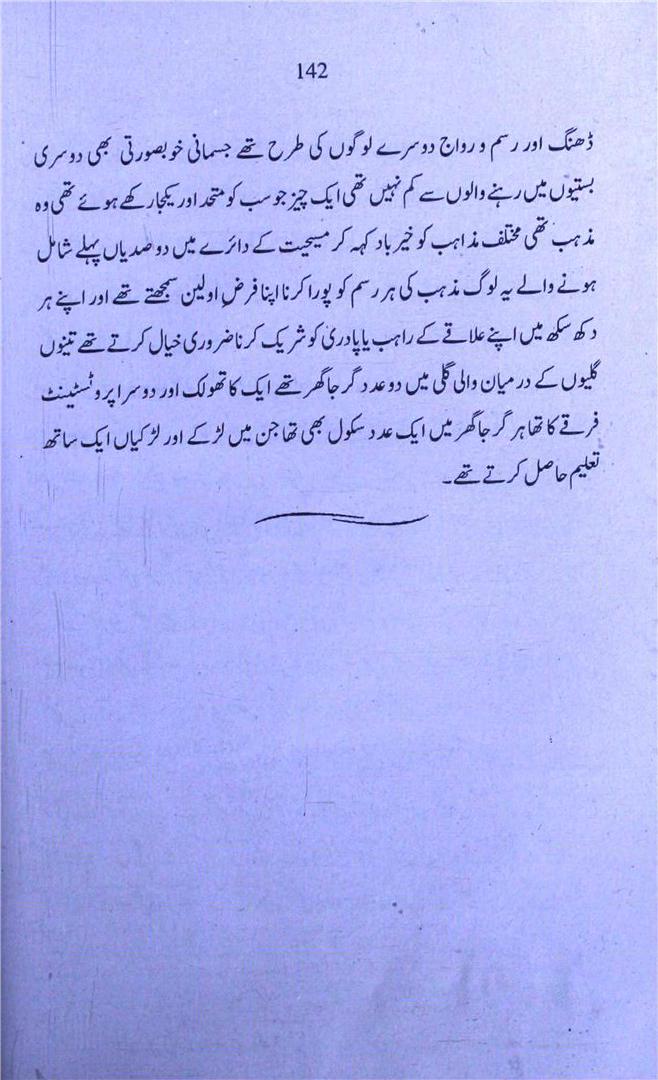 142
ڈھنگ اور رسم و رواج دوسرے لوگوں کی طرح تھے جسمانی خوبصورتی بھی دوسری
بستیوں میں رہنے والوں سے کم نہیں تھی ایک چیز جو سب کو متحد اور یکجا رکھے ہوئے تھی وہ
مذہب تھی مختلف مذاہب کو خیر باد کہہ کر مسیحیت کے دائرے میں دو صدیاں پہلے شامل
ہونے والے یہ لوگ مذہب کی ہر رسم کو پورا کرنا اپنا فرضِ اولین سمجھتے تھے اور اپنے ہر
دکھ سکھ میں اپنے علاقے کے راہب یا پادریٰ کو شریک کرنا ضروری خیال کرتے تھے تینوں
گلیوں کے درمیان والی گلی میں دو عدد گرجا گھر تھے ایک کاتھولک اور دوسرا پروٹسٹینٹ
فرقے کا تھا ہر گرجا گھر میں ایک عدد سکول بھی تھا جن میں لڑکے اور لڑکیاں ایک ساتھ
تعلیم حاصل کرتے تھے۔